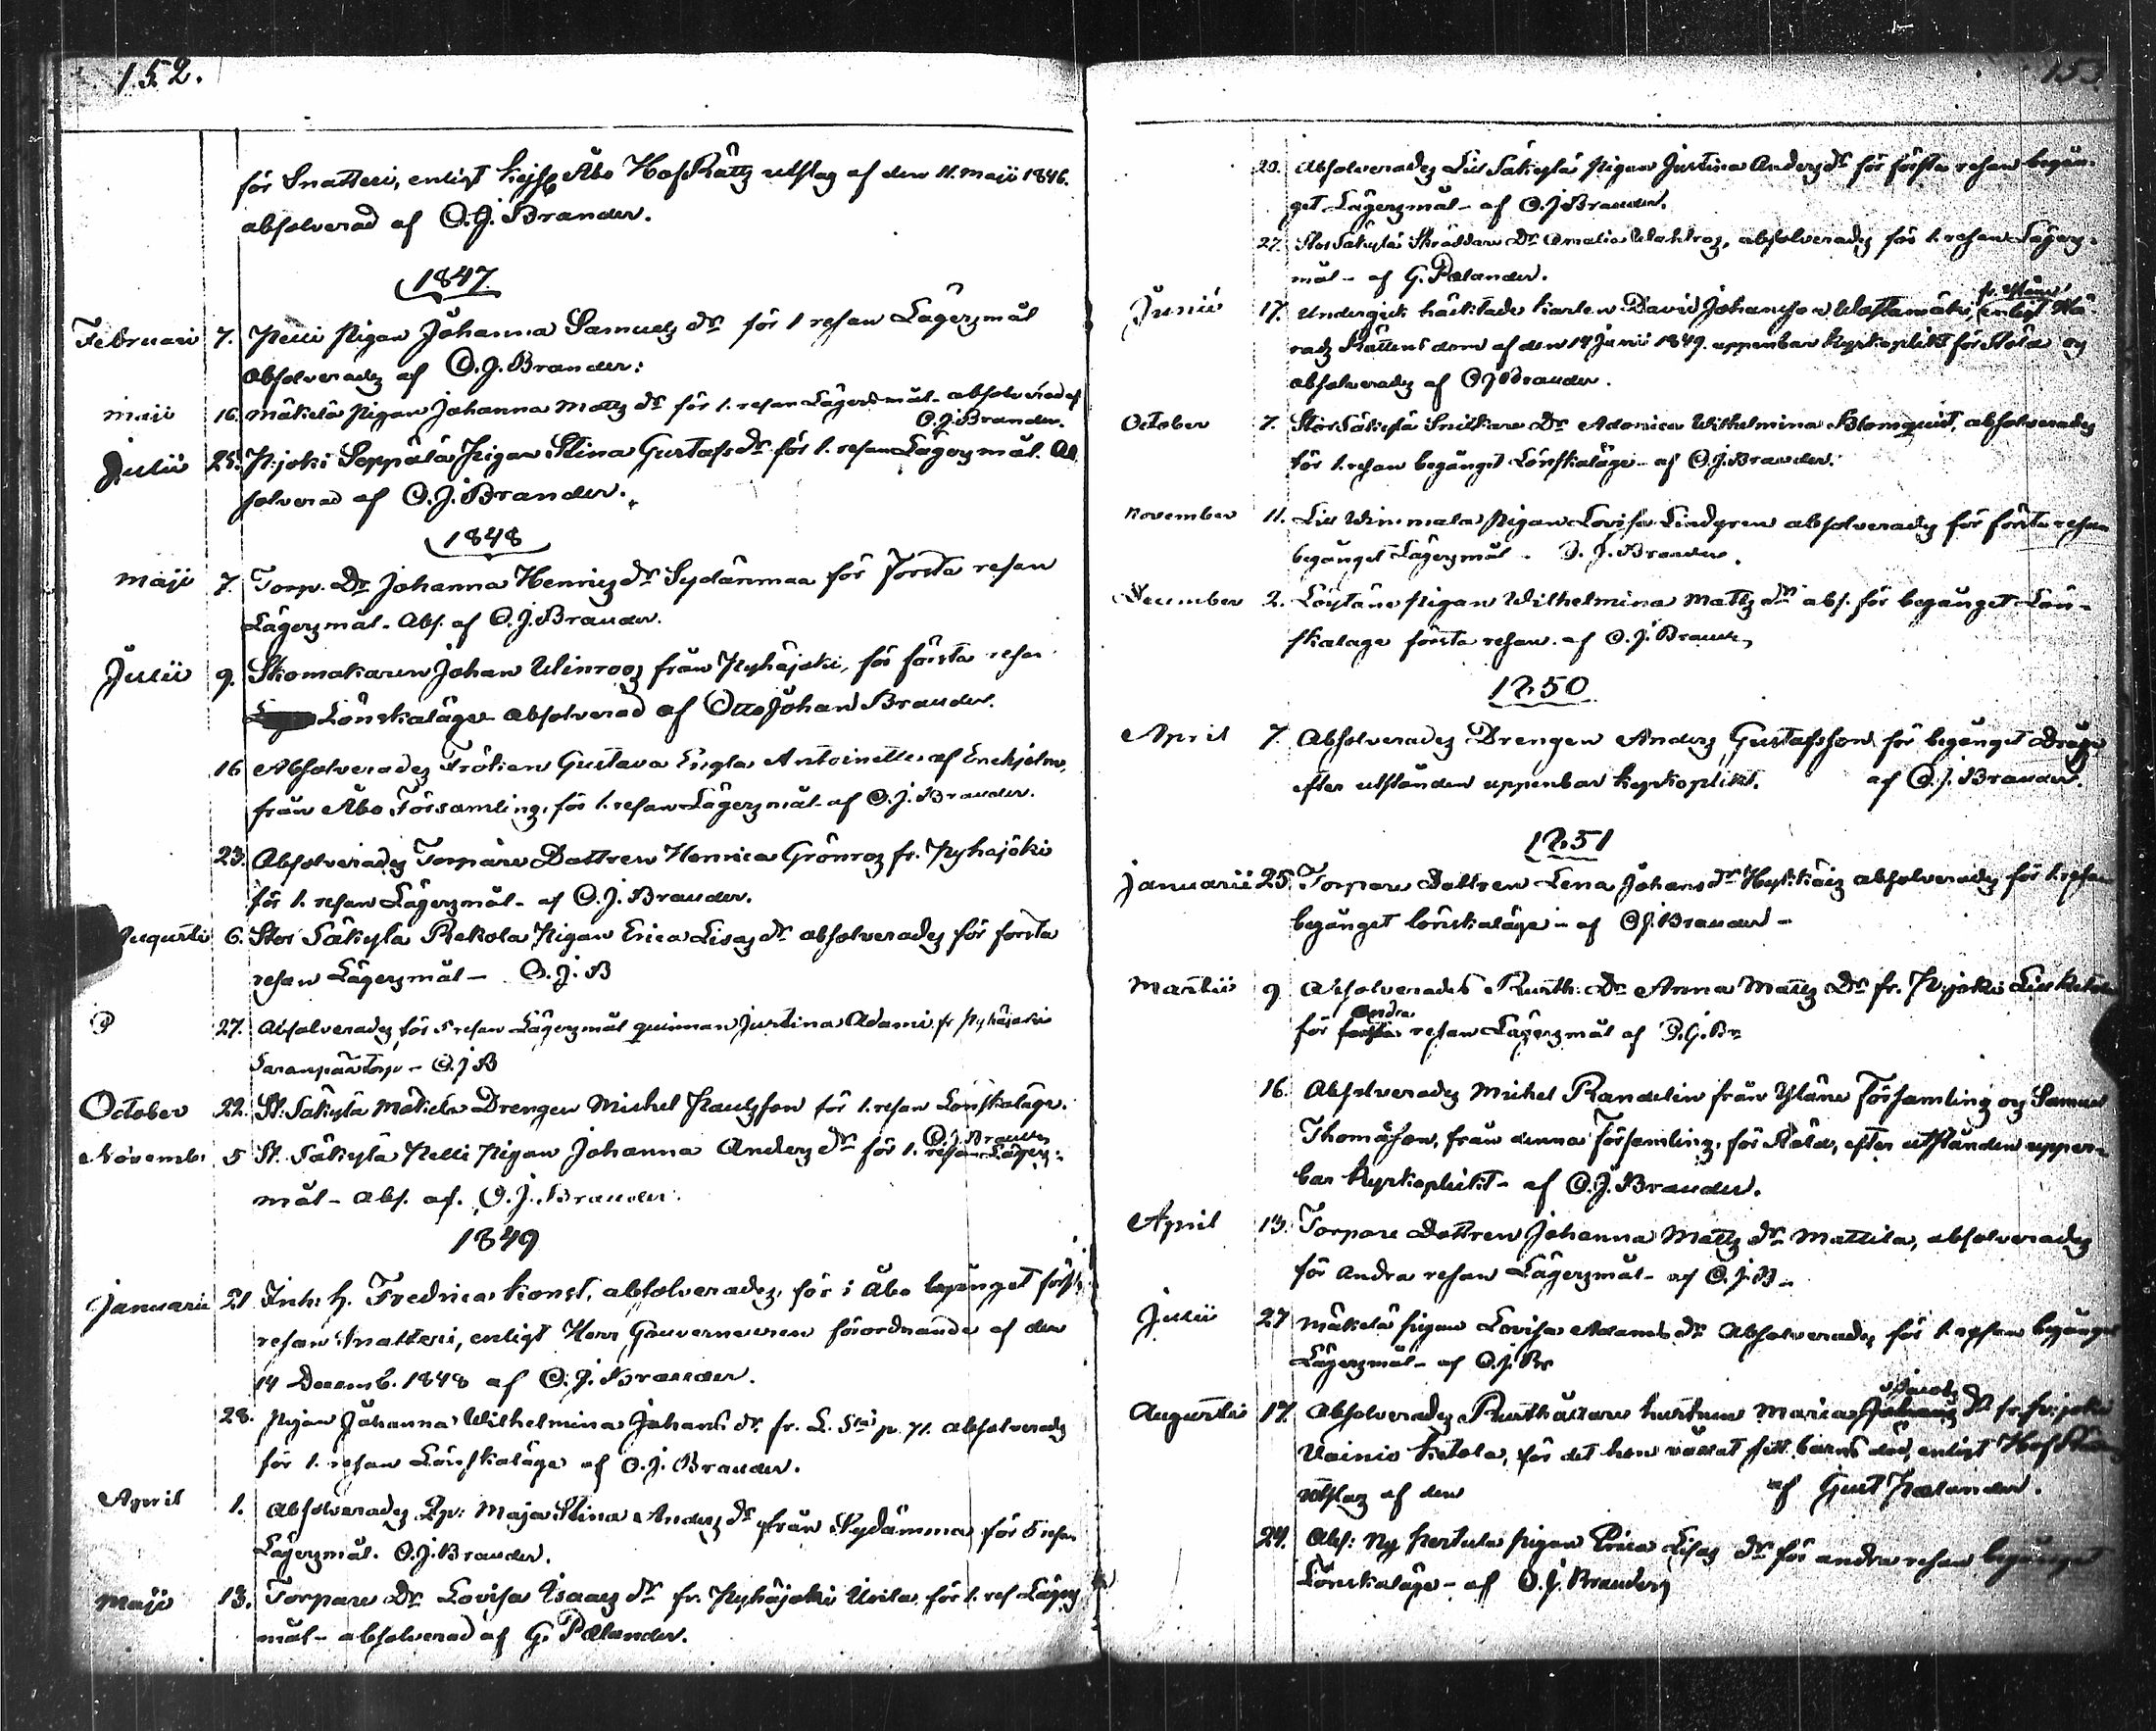 152.
för Snatteri, enligt Kejs. Åbo HofRätts utslag af den 11. Maji 1846.
absolverad af O.J. Brander.
1847
Februari 7. Pelli Pigan Johanna Samuels dr för 1 resan Lägersmål
Absolverades af O.J. Brander.
Maii 16. Mäkilä Pigan Johanna Matts dr för 1. resan Lägersmål absolverad af
O.J. Brander.
Julii 25. P.joki Seppälä Pigan Stina Gustafs dr för 1. resan Lägersmål. Ab
solverad af O.J. Brander.
1848
Maji 7. Torp. Dr Johanna Henrics dr Sydänmaa för första resan
Lägersmål. Abs. af O.J. Brander.
Julii 9. Skomakaren Johan Winroos från Pyhäjoki, för första resan
Lönskaläge absolverad af Otto Johan Brander.
16 Absolverades Fröken Gustava Engla Antoinette af Enehjelm,
från Åbo Församling, för 1. resan Lägersmål af O.J. Brander.
23. Absolverades Torpare Dottren Henrica Grönroos fr. Pyhäjoki
för 1. resan Lägersmål af O.J. Brander.
Augusti 6. Stor Säkylä Rekola Pigan Erica Lisas dr absolverades för första
resan Lägersmål – O.J.B
27. Absolverades för 5 resan Lägersmål quinnan Justina Adami fr Pyhäjoki
torp – O.J B
October 22. St. Säkylä Mäkilä Drengen Michel Paulsson för 1. resan Lönskaläge.
O.J. Brander
Novemb. 5 St. Säkylä Pelli Pigan Johanna Anders dr för 1. resan Lägers-
mål – Abs. af. O.J. Brander.
1849
Januarii 21 Inh. h. Fredrica Konst, absolverades, för i Åbo begånget första
resan Snatteri, enligt Herr Gouverneuren förordnande af den
14 Decemb. 1848 af O.J. Brander.
28. Pigan Johanna Wilhelmina Johans dr fr. L. p. 71. absolverades
för 1. resan Lönskaläge af O.J. Brander.
April 1. Absolverades Qv: Maja Stina Anders dr från Sydänmaa för 5 resan
Lägersmål. O.J. Brander.
Maji 13. Torpare Dr Lovisa Isaacs dr fr. Pyhäjoki Uoila för 1. res Lägers
mål – absolverad af G. Palander.
153.
20. Absolverades Lill Säkylä Pigan Justina Anders dr för första resan begån-
get Lägersmål – af O.J Brander.
27. Stor Säkylä Skräddare Dr Amalia Wahlroos, absolverades för 1. resan Lägers-
mål – af G. Palander.
Junii 17. Undergick häktade karlen David Johansson enligt Hä-
rads Rättens dom af den 14 Junii 1849. uppenbar Kyrkoplikt för Stöld och
absolverades af O J Brander.
October 7. Stor Säkylä Snickare Dr Adamica Wilhelmina Blomquist, absolverades
för 1. resan begånget Lönskaläge – af O.J. Brander.
November 11. Lill Winmala Pigan Lovisa Lindgren absolverades för första resan
begånget Lägersmål. O. J. Brander.
December 2. Löytäne Pigan Wilhelmina Matts dr abs. för begånget Lön-
skaläge första resan. af O.J. Brander
1850
April 7. Absolverades Drengen Anders Gustafsson för begånget Dråp
efter utstånden uppenbar kyrkoplikt. af O.J. Brander.
1851
Januarii 25. Torpare Dottren Lena Johans dr absolverades för 1. resan
begånget lönskaläge – af O J. Brander –
Martii 9 Absolverades Rusth: Dr Anna Matts Dr fr. P.joki Lill Ketola
Andra
för första resan Lägersmål af O.J.Br
16. Absolverades Michel Randelin från Yläne Församling och Samuel
Thomasson, från denna Församling, för Stöld, efter utstånden uppen-
bar Kyrkoplikt – af O.J. Brander.
April 13. Torpare Dottren Johanna Matts dr Mattila, absolverades
för Andra resan Lägersmål – af O.J.B –
Julii 27 Mäkilä Pigan Lovisa Adams dr Absolverades för 1 resan begånget
Lägersmål – af O.J. Br
Jacobs
Augusti 17. Absolverades Rusthållare hustrun Maria Johans Dr fr. P.joki
Vainio Ketola, för det hon vållat sitt barns död, enligt HofRätts
utslag af den af Gust Palander.
24. Abs: Ny Pertula Pigan Erica Lisas dr för andra resan begånget
Lönskaläge – af O.J. Brander